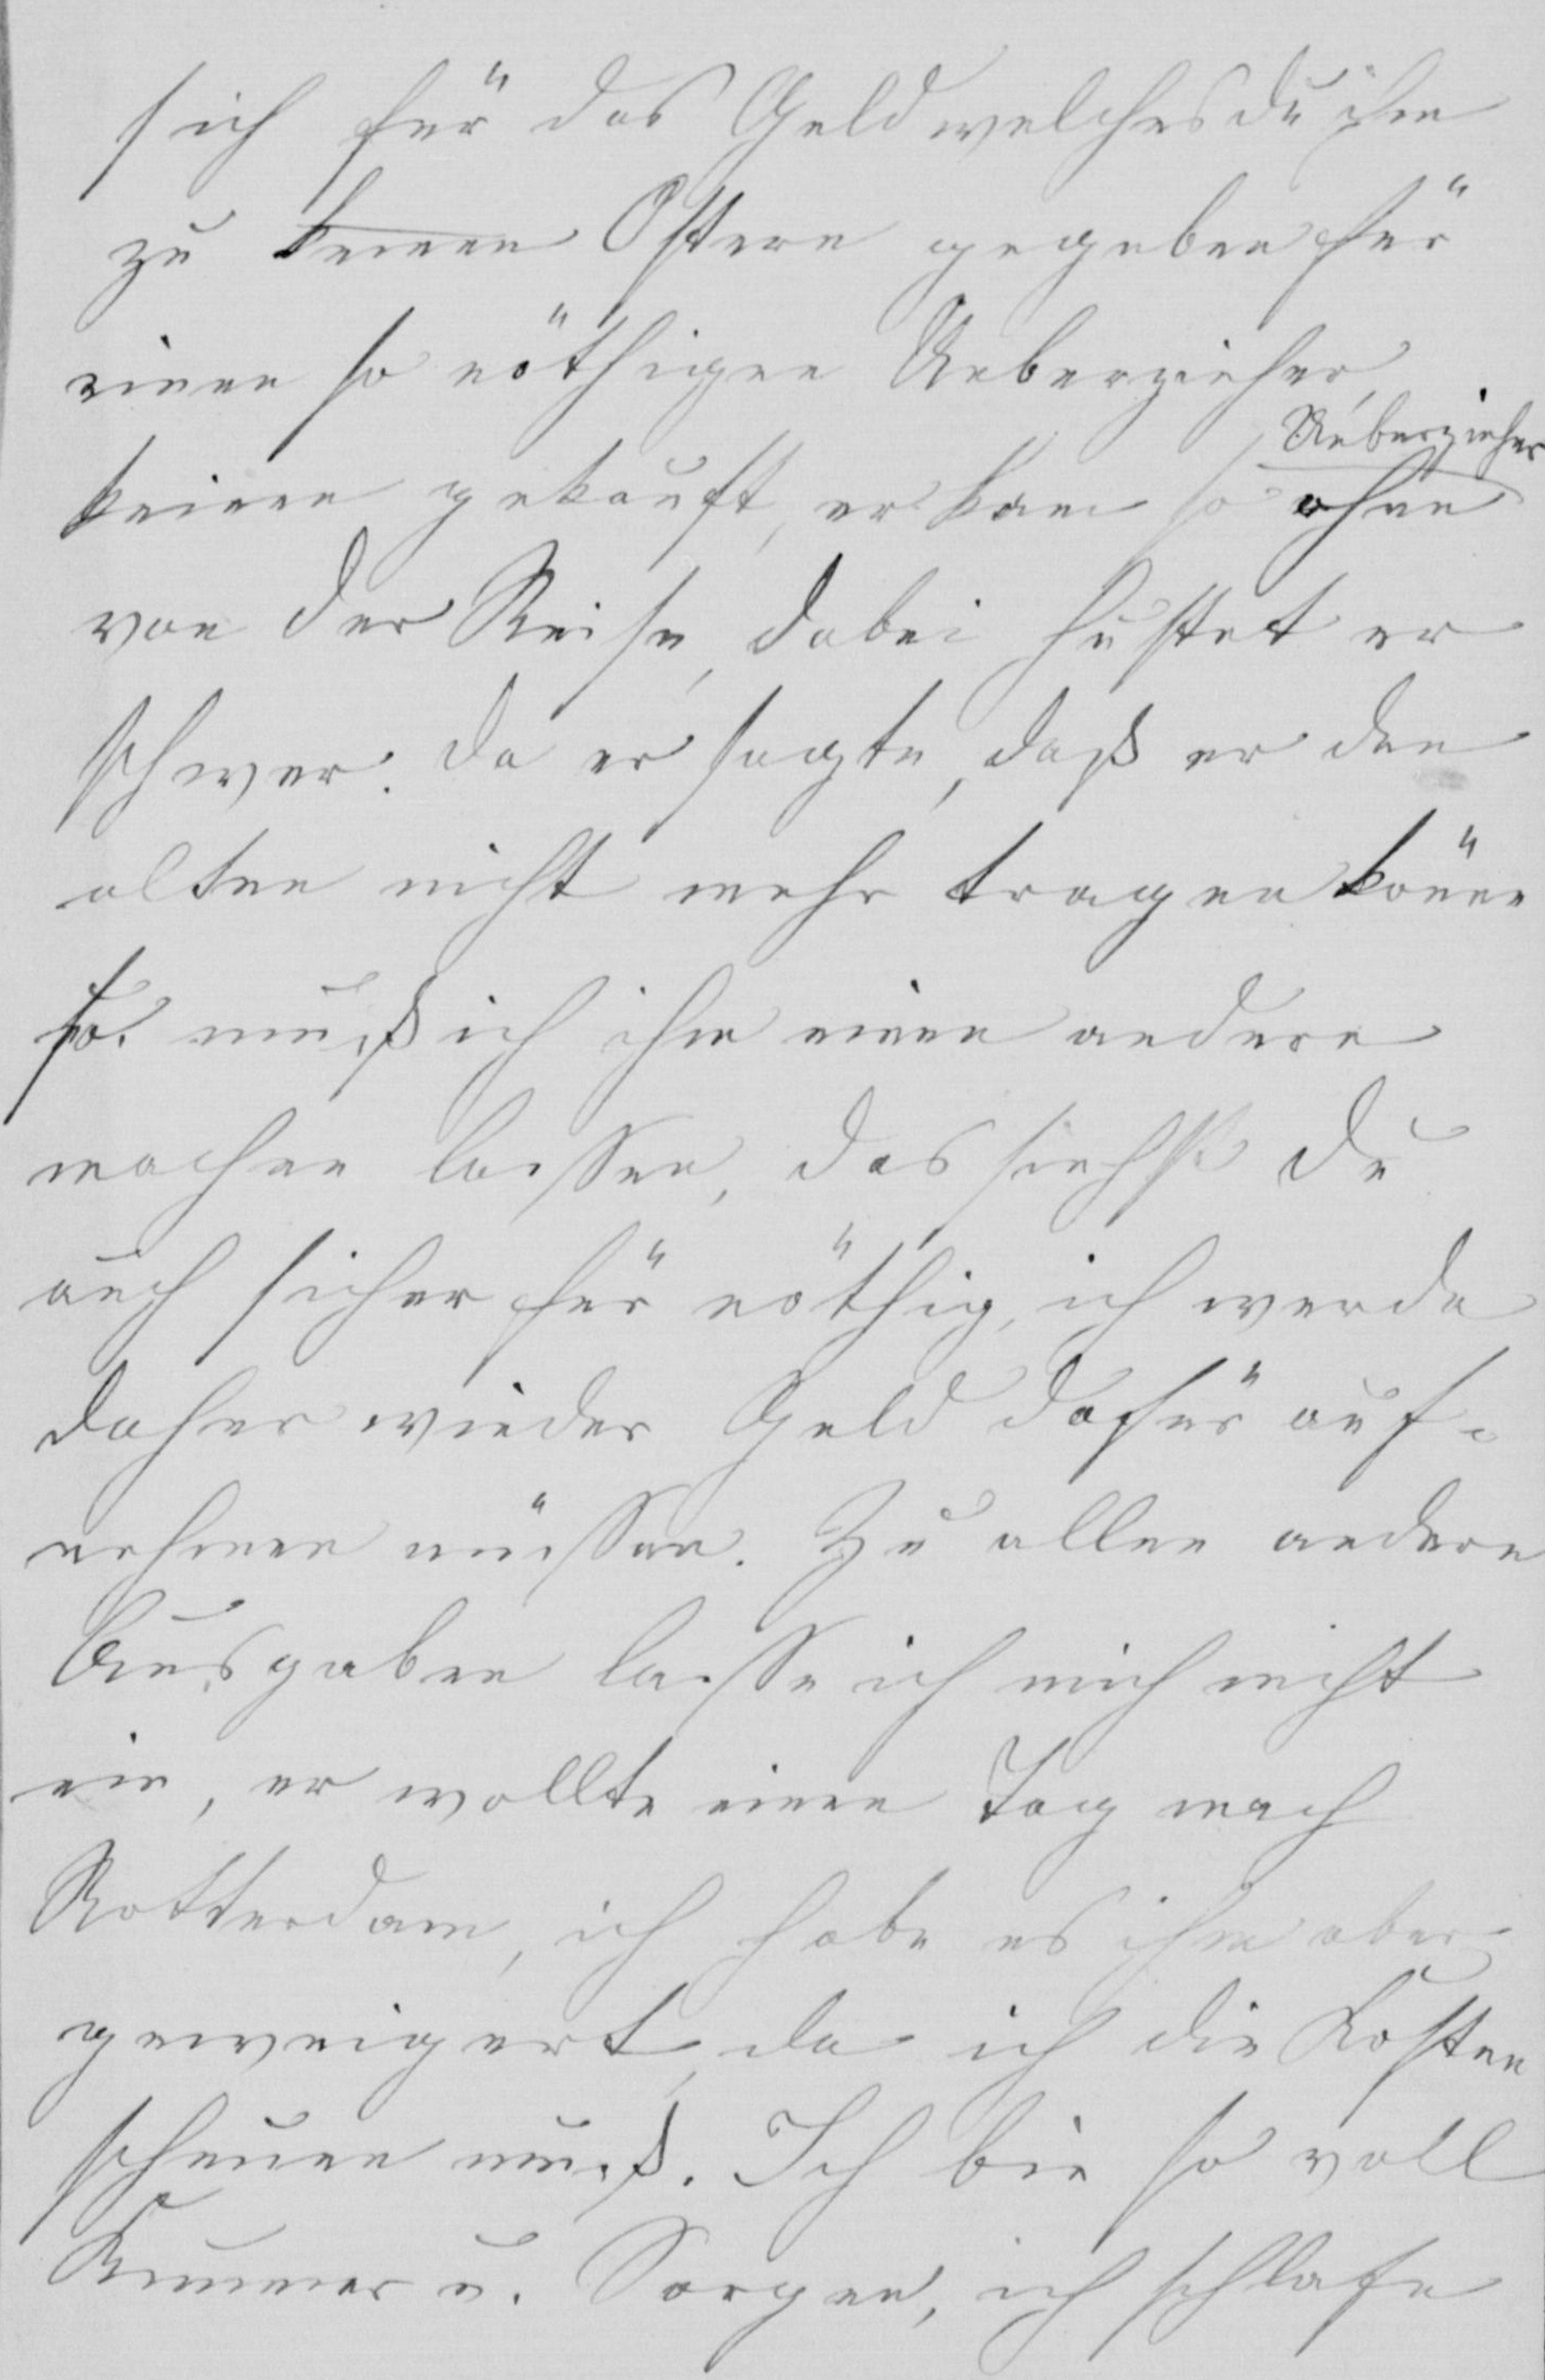 sich für das Geld welches du ihm
zu keinen Ostern gegeben für
einen so nöthigen Ueberzieher,
Ueberzieher
keinen gekauft, er kam so ohne
von der Reise, dabei hustet er
schwer. da er sagte, daß er den
alten nicht mehr tragen könne
so. muß ich ihm einen andern
machen lassen, das siehst du
auch sicher für nöthig, ich werde
daher wieder Geld dafür auf-
nehmen müssen. Zu allen andern
Ausgaben lasse ich mich nicht
ein, er wollte einen Tag nach
Rotterdam, ich habe es ihm aber
geweigert, da ich die Kosten
scheuen muß. Ich bin so voll
Kummer u. Sorgen, ich schlafe